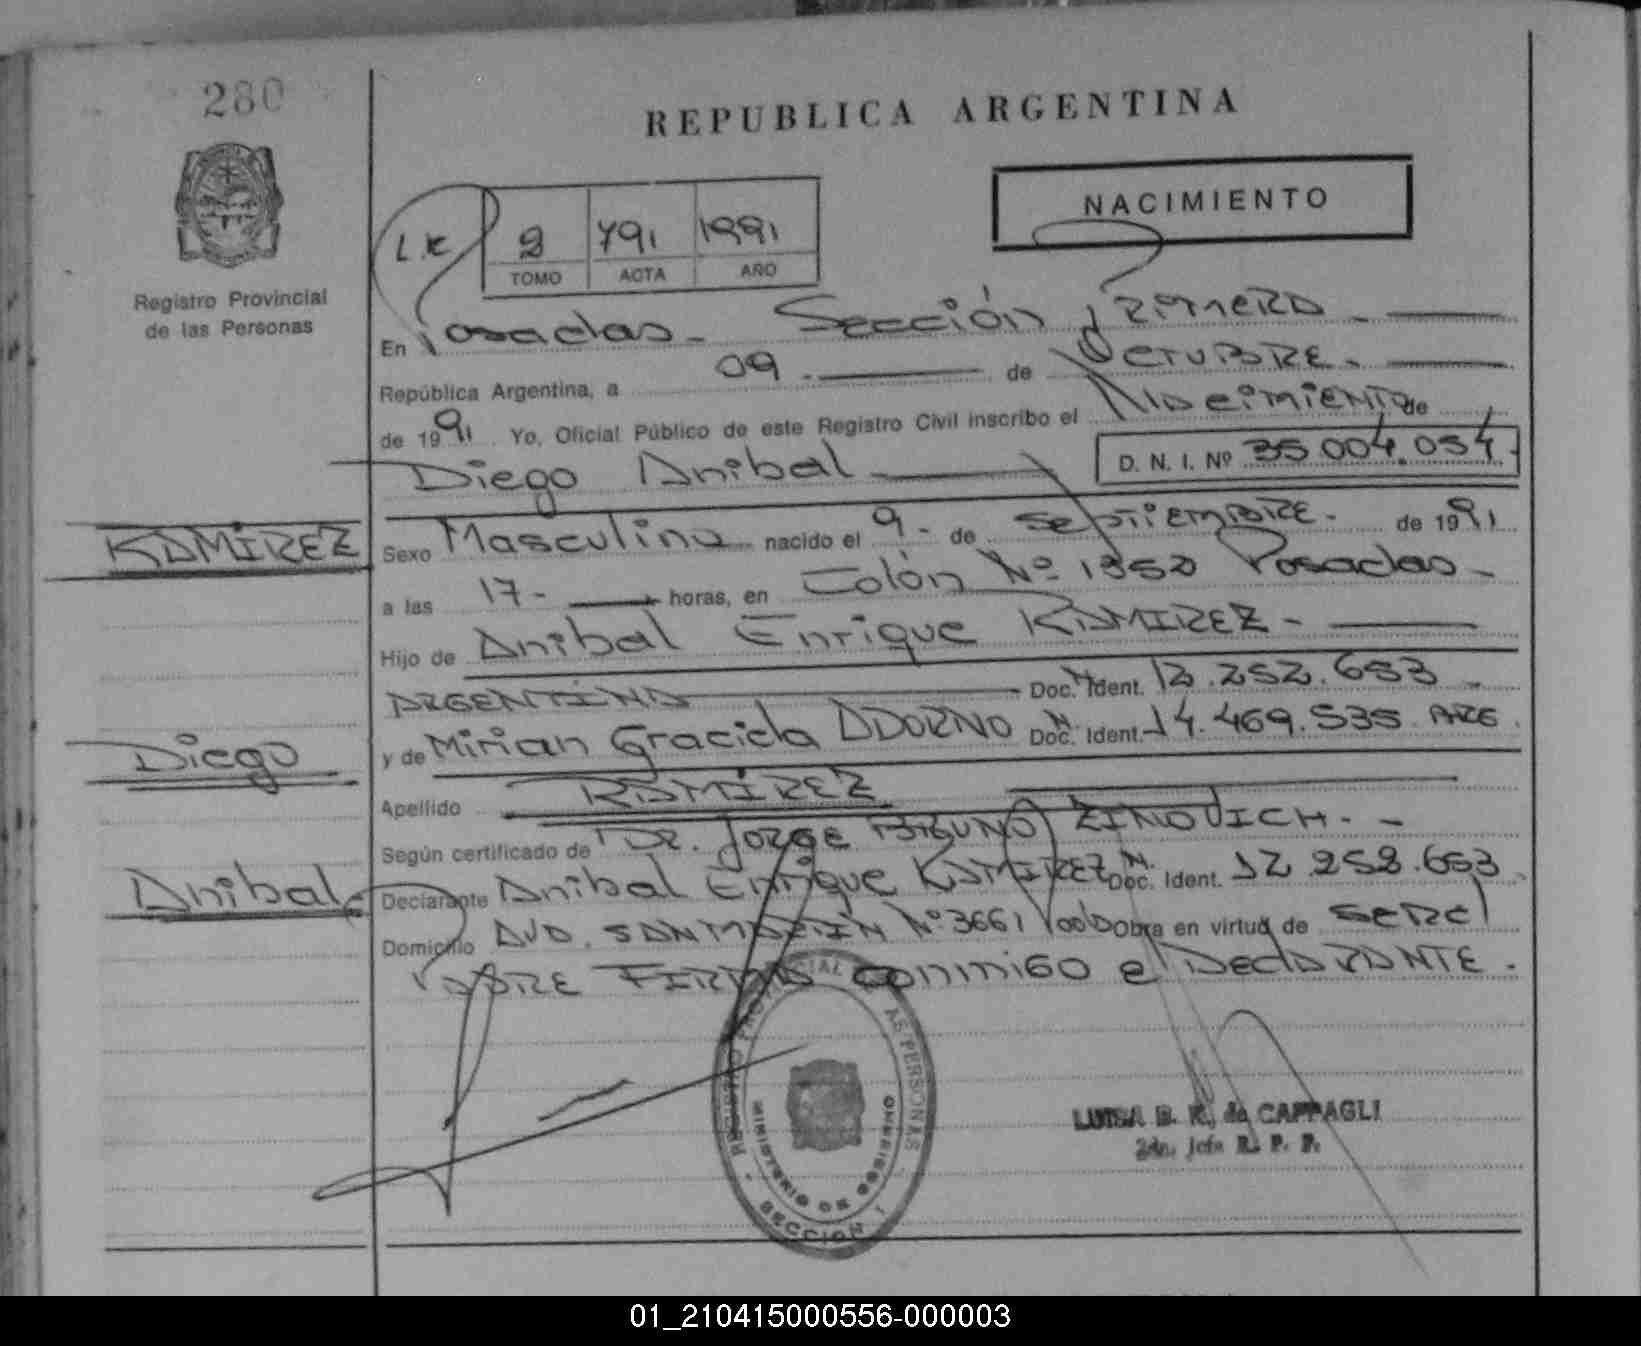 280
REPUBLICA ARGENTINA
NACIMIENTO
L.E 2 791 1991
TOMO ACTA AÑO
Registro Provincial
de las Personas
En Posadas - Sección Primera -
República Argentina, a 09 - de Octubre -
de 1991 Yo, Oficial Público de este Registro Civil inscribo el Nacimiento de
Diego Anibal D. N. I. Nº 35.004.054
RAMÍREZ
Sexo Masculino nacido el 9 - de Septiembre - de 1991
a las 17 - horas, en Colón Nº 1350 Posadas -
Hijo de Anibal Enrique RAMIREZ -
ARGENTINA Doc. N. Ident. 12.252.653 -
Diego
y de Mirian Graciela ADORNO Doc. N. Ident. 14.469.535 ARG.
Apellido RAMÍREZ
Según certificado de Dr. Jorge ZINOVICH. -
Anibal
Declarante Anibal Enrique RAMIREZ Doc. N. Ident. 12.252.653
Domicilio AVD. SAN MARTÍN Nº 3661 Obra en virtud de ser el
PADRE FIRMA conmigo el DeclaRANTE.
REGISTRO PROVINCIAL DE LAS PERSONAS
MINISTERIO DE GOBIERNO
SECCION 1
LUISA B. K. de CAPPAGLI
2da. Jefa R. P. P.
01_210415000556-000003